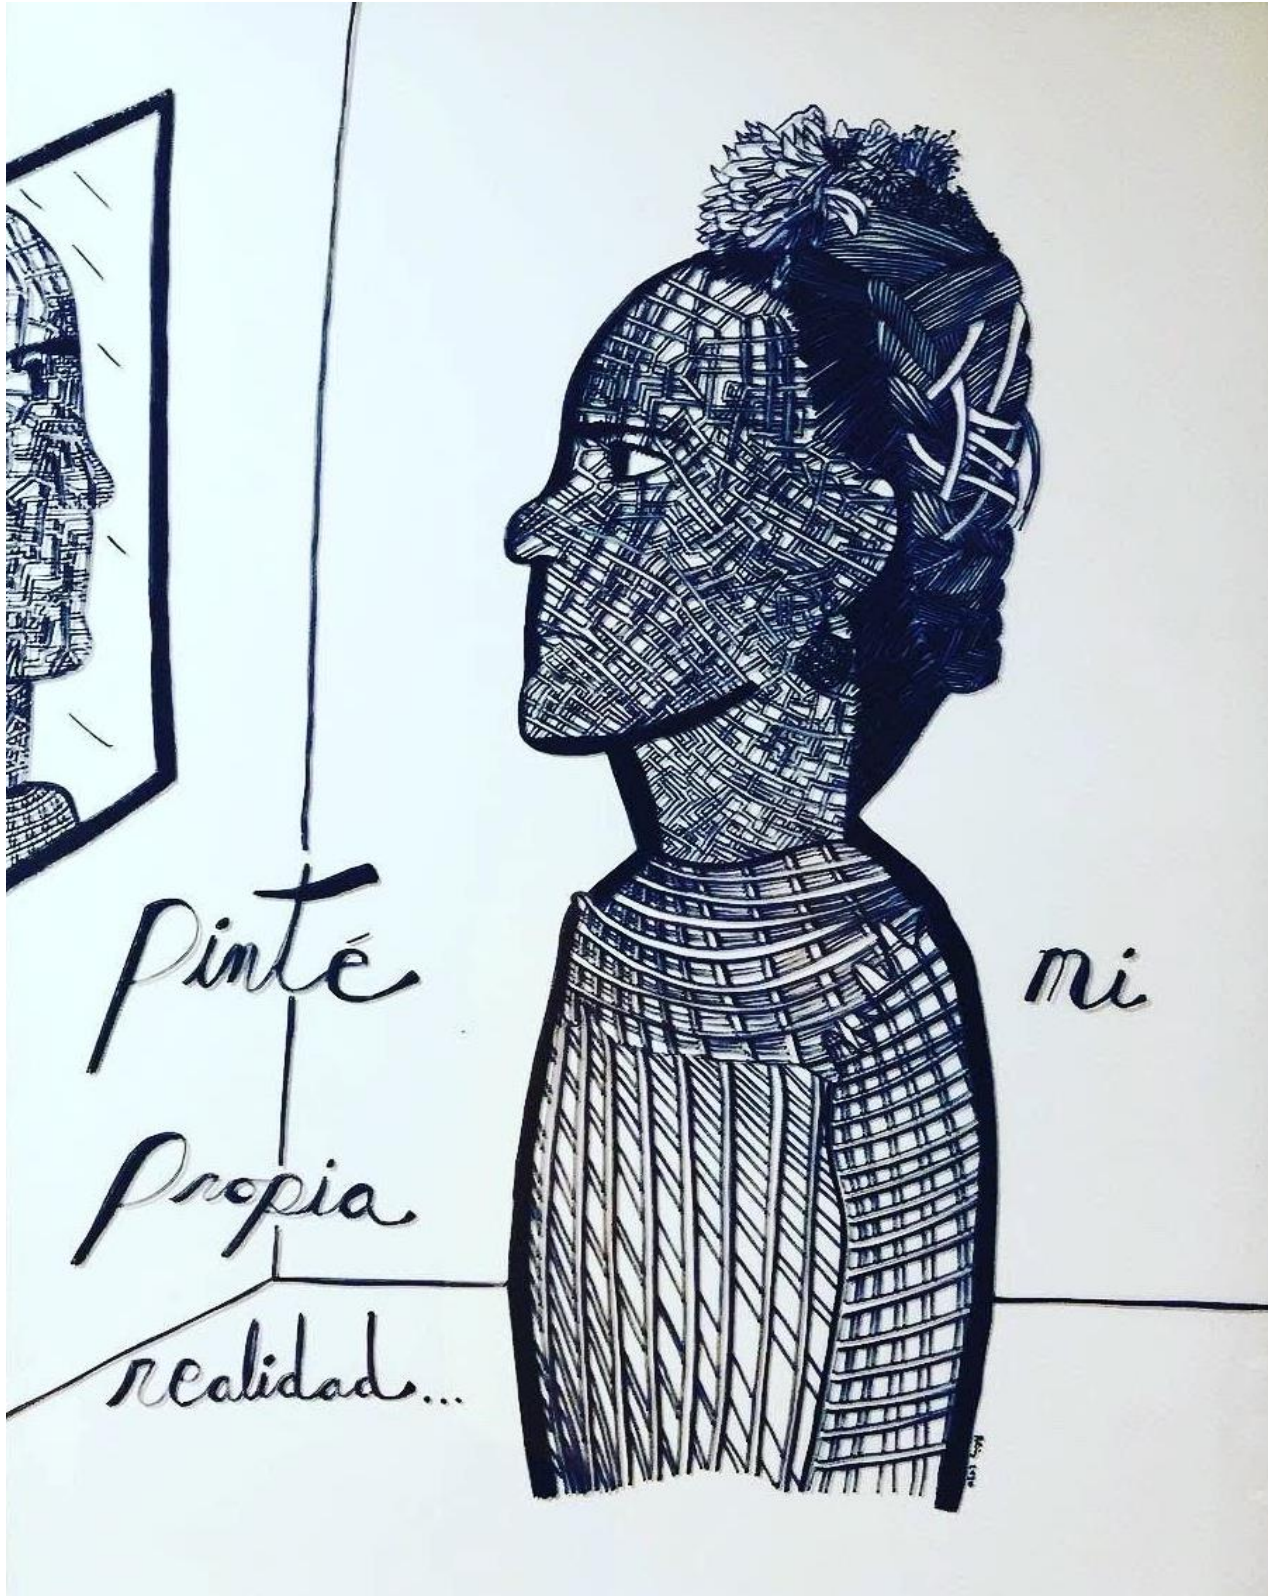 pinté mi
propia
realidad...